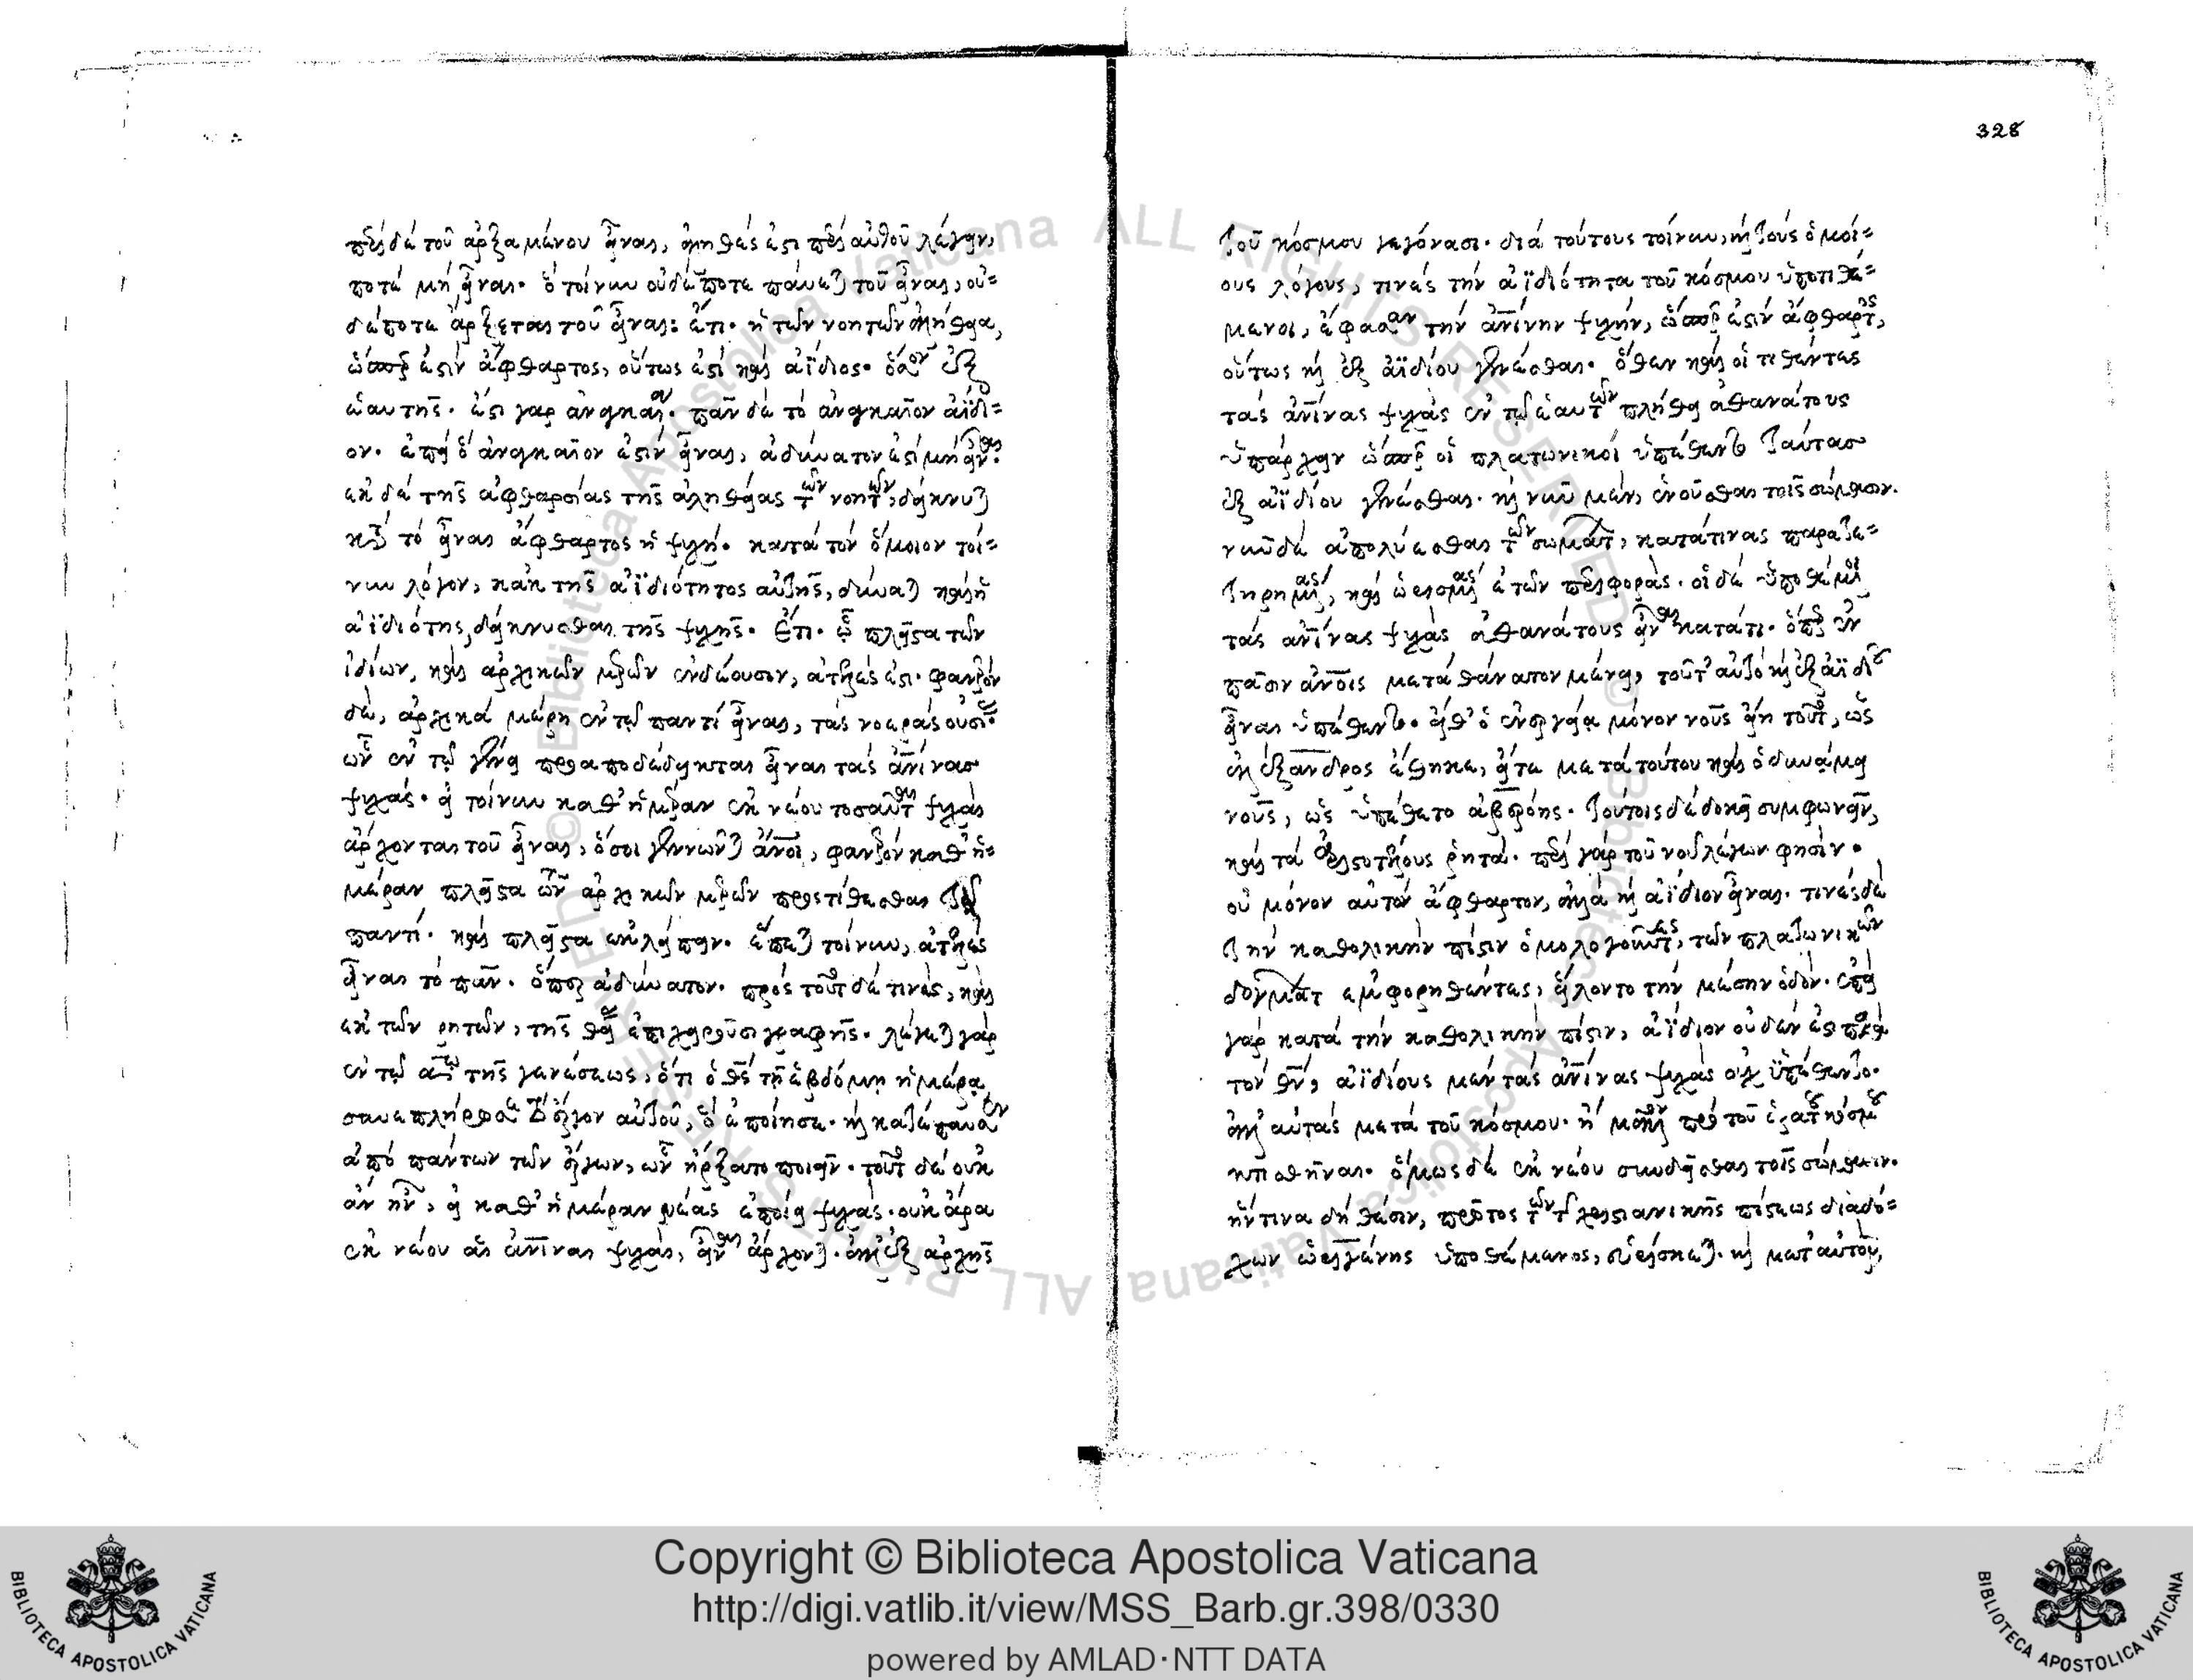 περὶ δὲ τοῦ ἀρξαμένου εἶναι, ἀληθές ἐστι περὶ αὐτοῦ λέγειν,
ποτὲ μὴ εἶναι. ὃ τοίνυν οὐδέποτε παύεται τοῦ εἶναι, οὐ=
δέποτε ἄρξεται τοῦ εἶναι: ἔτι. ἡ τῶν νοητῶν ἀλήθεια,
ὥσπερ ἐστὶν ἄφθαρτος, οὕτως ἐστὶ καὶ ἀΐδιος. ὅσον ἐξ
ἑαυτῆς. ἔστι γὰρ ἀναγκαία. πᾶν δὲ τὸ ἀναγκαῖον ἀΐδι=
ον. ἐπεὶ ὃ ἀναγκαῖον ἐστὶν εἶναι, ἀδύνατον ἐστὶ μὴ εἶναι.
ἐκ δὲ τῆς ἀφθαρσίας τῆς ἀληθείας τῶν νοητῶν, δείκνυται
καὶ τὸ εἶναι ἄφθαρτος ἡ ψυχή. κατὰ τὸν ὅμοιον τοί=
νυν λόγον, κἀκ τῆς ἀϊδιότητος αὐτῆς, δύναται καὶ ἡ
ἀϊδιότης δείκνυσθαι τῆς ψυχῆς. Ἔτι. ᾧ πλεῖστα τῶν
ἰδίων, καὶ ἀρχικῶν μερῶν ἐνδέουσιν, ἀτελές ἐστι. φανερὸν
δὲ, ἀρχικὰ μέρη ἐν τῷ παντὶ εἶναι, τὰς νοερὰς οὐσίας.
ὧν ἐν τῷ γένει προαποδέδεικται εἶναι τὰς ἀνίνας
ψυχάς. εἰ τοίνυν καθ' ἡμέραν ἐκ νέου τοσαῦται ψυχαὶ
ἄρχονται τοῦ εἶναι, ὅσοι γεννῶνται ἄνοι, φανερὸν καθ' ἡ=
μέραν πλεῖστα τῶν ἀρχικῶν μερῶν προστίθεσθαι τῷ
παντί. καὶ πλεῖστα ἐκλείπειν. ἕπεται τοίνυν, ἀτελὲς
εἶναι τὸ πᾶν. ὅπερ ἀδύνατον. πρὸς τοῦτο δέ τινες, καὶ
ἐκ τῶν ρητῶν, τῆς θείας ἐπιχειροῦσι γραφῆς. λέγεται γὰρ
ἐν τῷ αω τῆς γενέσεως, ὅτι ὁ θς τῇ ἑβδόμῃ ἡμέρᾳ
συνεπλήρωσε τὸ ἔργον αὐτοῦ, ὃ ἐποίησε. καὶ κατέπαυσεν
ἀπὸ πάντων τῶν ἔργων, ὧν ἤρξατο ποιεῖν. τοῦτο δὲ οὐκ
ἂν ἦν, εἰ καθ' ἡμέραν νέας ἐποίει ψυχάς. οὐκ ἄρα
ἐκ νέου αἱ ἀνιναι ψυχαὶ, εἶναι ἄρχονται. ἀλλ' ἐξ ἀρχῆς
328
τοῦ κόσμου γεγόνασι. διὰ τούτους τοίνυν, καὶ τοὺς ὁμοί=
ους λόγους, τινὲς τὴν ἀϊδιότητα τοῦ κόσμου ὑποτιθέ=
μενοι, ἔφασαν τὴν ἀνίνην ψυχὴν, ὥσπερ ἐστὶν ἄφθαρτος,
οὕτως καὶ ἐξ ἀϊδίου γενέσθαι. ὅθεν καὶ οἱ τιθέντες
τὰς ἀνίνας ψυχὰς ἐν τῷ ἑαυτῶν πλήθει ἀθανάτους
ὑπάρχειν ὥσπερ οἱ πλατωνικοὶ ὑπέθεντο ταύτας
ἐξ ἀϊδίου γενέσθαι. καὶ νῦν μὲν, ἑνοῦσθαι τοῖς σώμασιν.
νῦν δὲ ἀπολύεσθαι τῶν σωμάτων, κατά τινας παρατε=
τηρημένας, καὶ ὡρισμένας ἐτῶν περιφοράς. οἱ δὲ ὑποθέμενοι
τὰς ἀνίνας ψυχὰς ἀθανάτους εἶναι κατά τι. ὅπερ ἐν
πᾶσιν ἀνοις μετὰ θάνατον μένει, τοῦτ' αὐτὸ καὶ ἐξ ἀϊδίου
εἶναι ὑπέθεντο. εἴθ' ὁ ἐνεργείᾳ μόνον νοῦς εἴη τοῦτο, ὡς
ἀλέξανδρος ἔθηκε, εἴτε μετὰ τούτου καὶ ὁ δυνάμει
νοῦς, ὡς ὑπέθετο ἀβερόης. τούτοις δὲ δοκεῖ συμφωνεῖν,
καὶ τὰ ἀριστοτέλους ῥητά. περὶ γὰρ τοῦ νοῦ λέγων φησὶν.
οὐ μόνον αὐτὸν ἄφθαρτον, ἀλλὰ καὶ ἀΐδιον εἶναι. τινὲς δὲ
τὴν καθολικὴν πίστιν ὁμολογοῦντες, τῶν πλατωνικῶν
δογμάτων ἐμφορηθέντες, εἵλοντο τὴν μέσην ὁδόν. ἐπεὶ
γὰρ κατὰ τὴν καθολικὴν πίστιν, ἀΐδιον οὐδέν ἐστι παρὰ
τὸν θν, ἀϊδίους μὲν τὰς ἀνίνας ψυχὰς οὐχ ὑπέθεντο.
ἀλλ' αὐτὰς μετὰ τοῦ κόσμου. ἢ μᾶλλον πρὸ τοῦ ὁρατοῦ κόσμου
κτισθῆναι. ὅμως δὲ ἐκ νέου συνδεῖσθαι τοῖς σώμασιν.
ἥντινα δὴ θέσιν, πρῶτος τῶν τῆς χριστιανικῆς πίστεως διαδό=
χων ὠριγένης ὑποθέμενος, εὑρίσκεται. καὶ μετ' αὐτὸν,
Copyright © Biblioteca Apostolica Vaticana
http://digi.vatlib.it/view/MSS_Barb.gr.398/0330
powered by AMLAD·NTT DATA
BIBLIOTECA APOSTOLICA VATICANA
BIBLIOTECA APOSTOLICA VATICANA